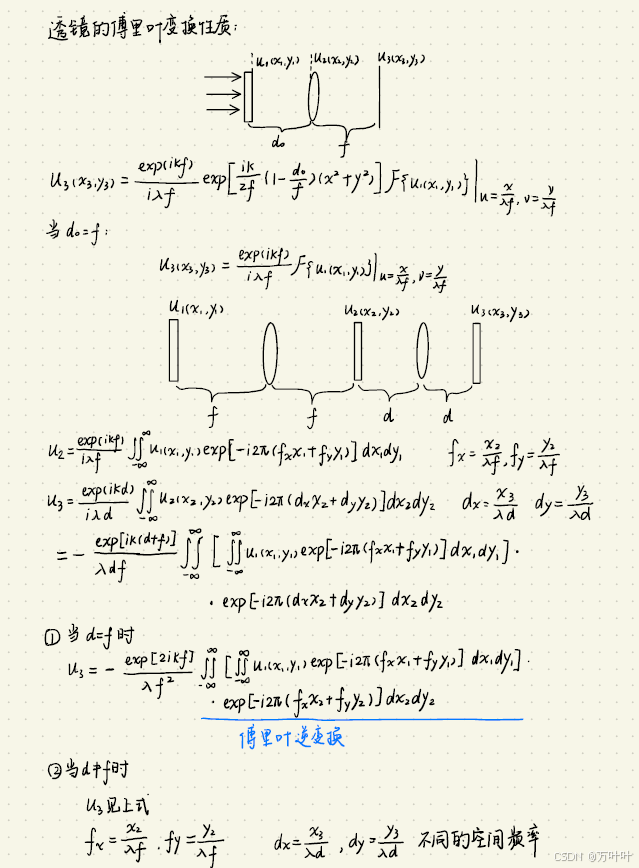 透镜的傅里叶变换性质:
u₁(x₁,y₁) u₂(x₂,y₂) u₃(x₃,y₃)
d₀ f
u₃(x₃,y₃) = \frac{exp(ikf)}{iλf} exp[\frac{ik}{2f}(1-\frac{d₀}{f})(x²+y²)] F{u₁(x₁,y₁)}|_{u=\frac{x}{λf}, v=\frac{y}{λf}}
当 d₀=f:
u₃(x₃,y₃) = \frac{exp(ikf)}{iλf} F{u₁(x₁,y₁)}|_{u=\frac{x}{λf}, v=\frac{y}{λf}}
u₁(x₁,y₁) u₂(x₂,y₂) u₃(x₃,y₃)
f f d d
u₂ = \frac{exp(ikf)}{iλf} ∬_{-∞}^{∞} u₁(x₁,y₁) exp[-i2π(fₓx₁+f_y y₁)] dx₁dy₁ fₓ=\frac{x₂}{λf}, f_y=\frac{y₂}{λf}
u₃ = \frac{exp(ikd)}{iλd} ∬_{-∞}^{∞} u₂(x₂,y₂) exp[-i2π(dₓx₂+d_y y₂)] dx₂dy₂ dₓ=\frac{x₃}{λd} d_y=\frac{y₃}{λd}
= - \frac{exp[ik(d+f)]}{λdf} ∬_{-∞}^{∞} [∬_{-∞}^{∞} u₁(x₁,y₁) exp[-i2π(fₓx₁+f_y y₁)] dx₁dy₁]·
· exp[-i2π(dₓx₂+d_y y₂)] dx₂dy₂
① 当 d=f 时
u₃ = - \frac{exp[2ikf]}{λf²} ∬_{-∞}^{∞} [∬_{-∞}^{∞} u₁(x₁,y₁) exp[-i2π(fₓx₁+f_y y₁)] dx₁dy₁]·
· exp[-i2π(fₓx₂+f_y y₂)] dx₂dy₂
傅里叶逆变换
② 当 d≠f 时
u₃ 见上式
fₓ=\frac{x₂}{λf}, f_y=\frac{y₂}{λf} dₓ=\frac{x₃}{λd}, d_y=\frac{y₃}{λd} 不同的空间频率
CSDN @万叶叶